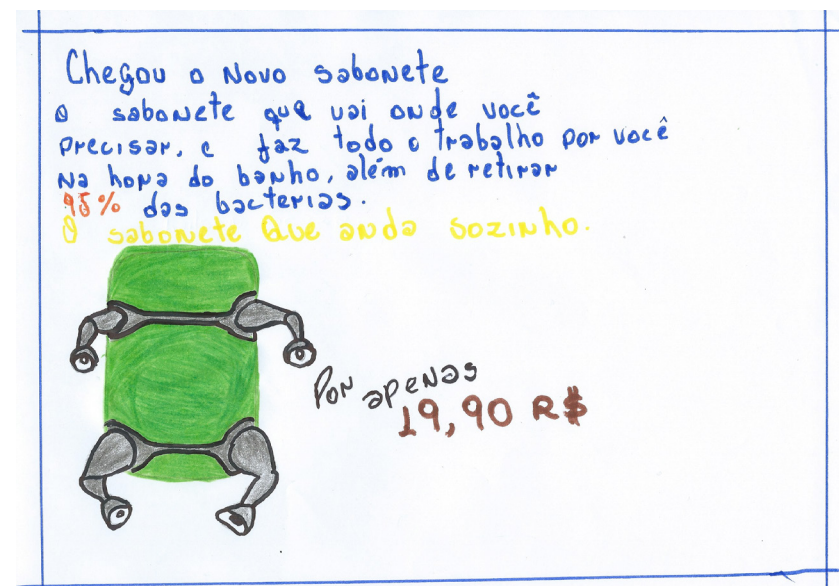 Chegou o Novo sabonete
O sabonete que vai onde você
precisar, e faz todo o trabalho por você
na hora do banho, além de retirar
95% das bacterias.
O sabonete Que anda sozinho.
Por apenas
19,90 R$